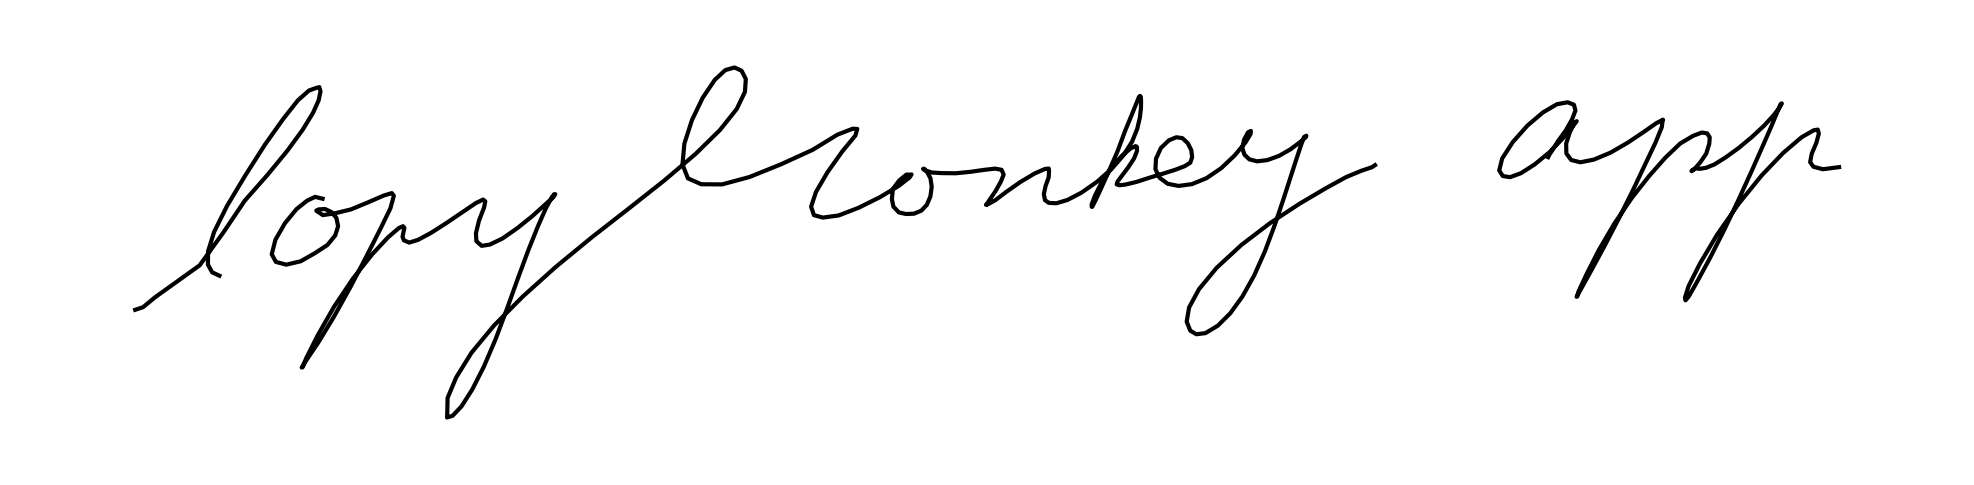 lopy lionkey app